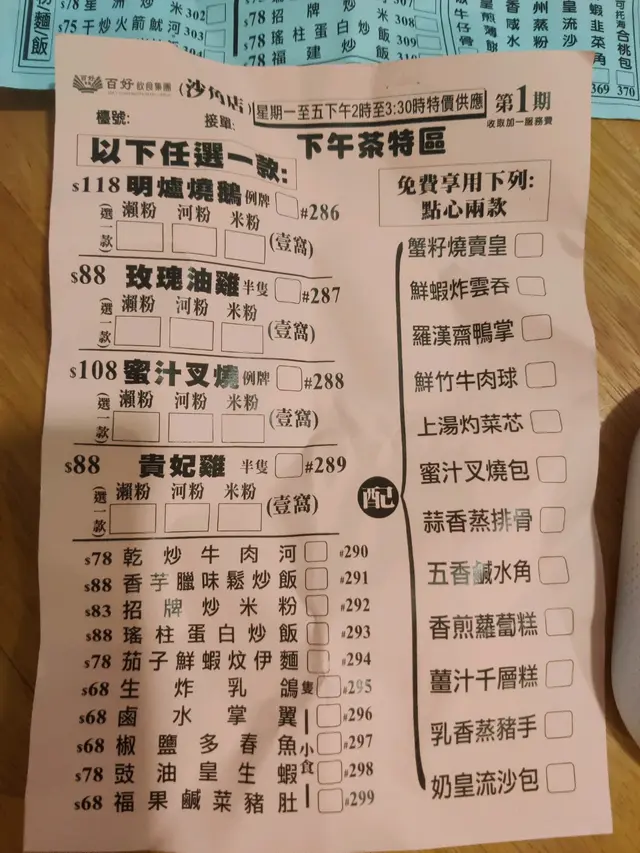 $78 星洲炒米 302
$75 干炒火箭魷河 303
$78 招牌炒 308
$78 瑤柱蛋白炒飯 309
$78 福建炒
369 370
百好 飲食集團
(沙角店)
星期一至五下午2時至3:30時特價供應
第1期
收取加一服務費
檯號: 接單:
下午茶特區
以下任選一款:
$118 明爐燒鵝 例牌 #286
(選一款) 瀨粉 河粉 米粉 (壹窩)
$88 玫瑰油雞 半隻 #287
(選一款) 瀨粉 河粉 米粉 (壹窩)
$108 蜜汁叉燒 例牌 #288
(選一款) 瀨粉 河粉 米粉 (壹窩)
$88 貴妃雞 半隻 #289
(選一款) 瀨粉 河粉 米粉 (壹窩)
$78 乾炒牛肉河 #290
$88 香芋臘味鬆炒飯 #291
$83 招牌炒米粉 #292
$88 瑤柱蛋白炒飯 #293
$78 茄子鮮蝦炆伊麵 #294
$68 生炸乳鴿 隻 #295
$68 鹵水掌翼 #296
$68 椒鹽多春魚 #297
$78 豉油皇生蝦 #298
$68 福果鹹菜豬肚 #299
小食
配
免費享用下列:
點心兩款
蟹籽燒賣皇
鮮蝦炸雲吞
羅漢齋鴨掌
鮮竹牛肉球
上湯灼菜芯
蜜汁叉燒包
蒜香蒸排骨
五香鹹水角
香煎蘿蔔糕
薑汁千層糕
乳香蒸豬手
奶皇流沙包